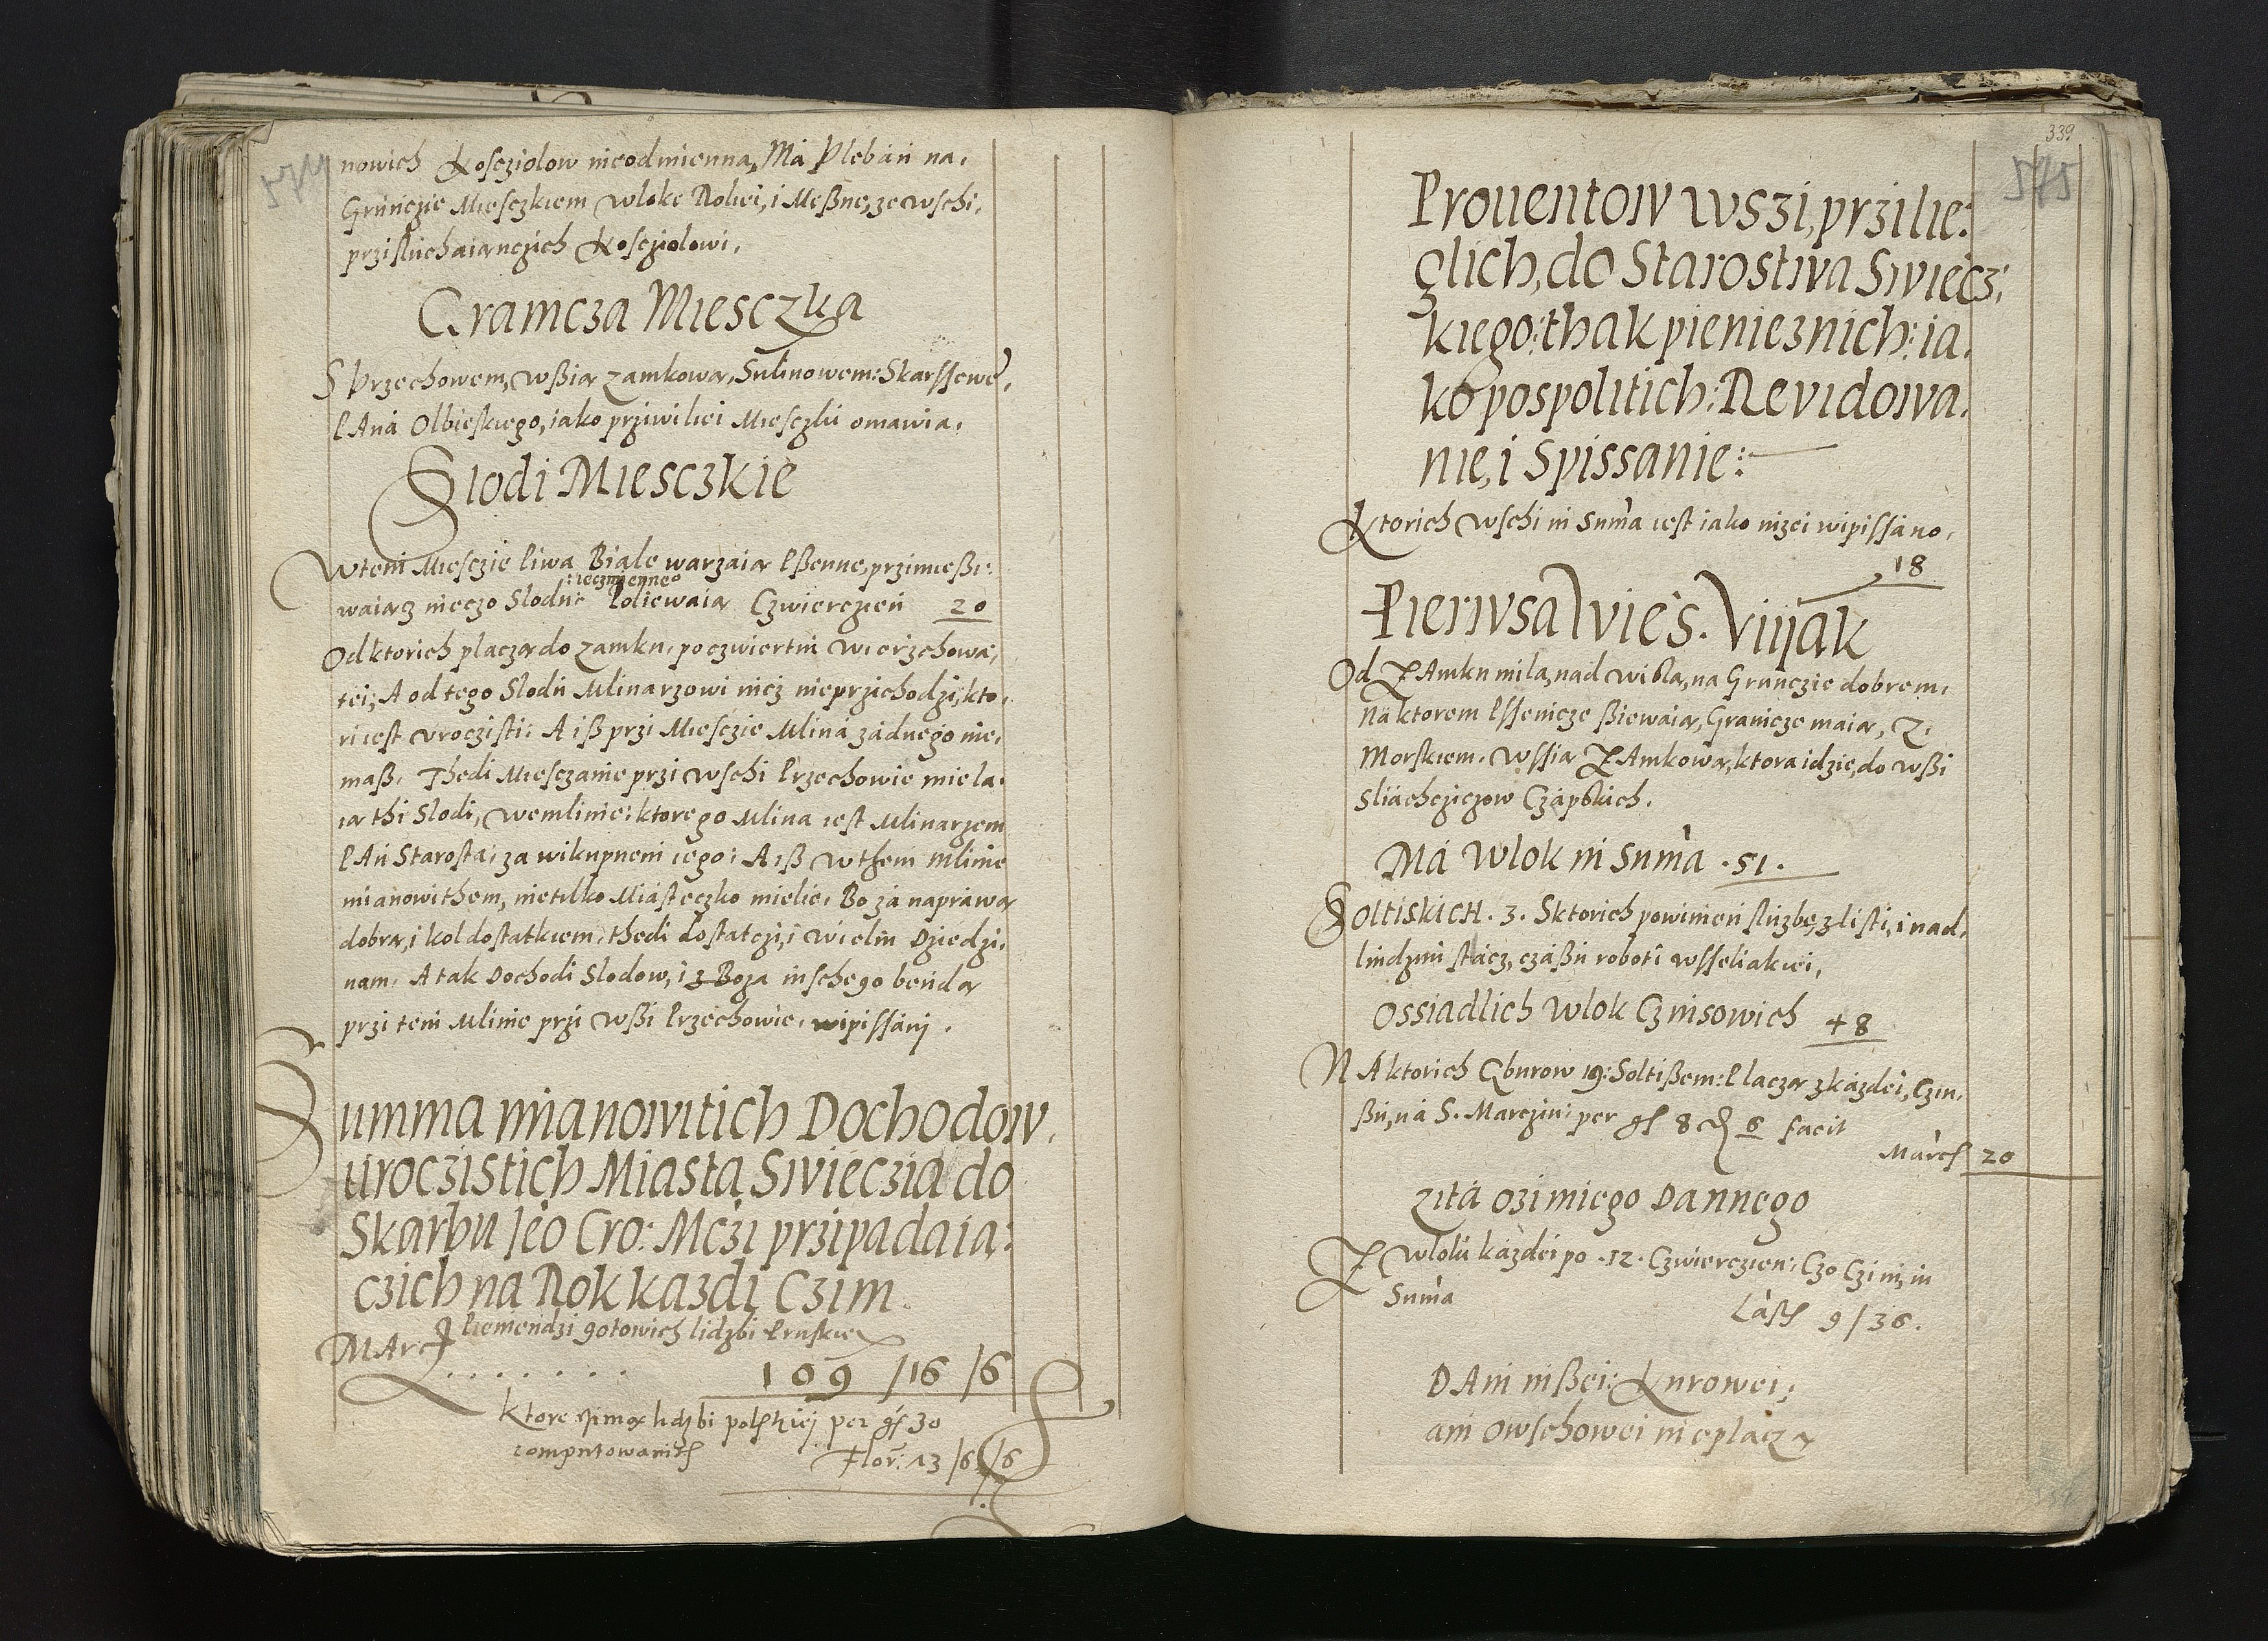 574
nowich Kosciolow nieodmienna, Ma Pleban na,
Grunczie Miesczkiem Wloke Roliei, i Meßne, ze wschi,
przisluchaianczich Kosciolowi,
Gramcza Miesczka
S Przechowem, wßią zamkową, Sulinowem: Skarssewe,
PAna Olbieskiego, iako prziwiliei Miesczki omawia,
Slodi Miesczkie
W tem Miesczie Piwa Biale warzaią Pßenne, przimießi:
:ieczmienne
waiącz nieczo Slodu Poliewaią Czwierczien 20
Od ktorich placzą do zamku, po czwiertni Wierzchowa,
tei; A od tego Slodu Mlinarzowi nicz nieprzichodzi, kto,
ri iest vroczisti: A iß przi Miesczie Mlina żadnego nie,
maß. Thedi Miesczanie przi wschi Przechowie miela,
ią thi Slodi, we mlinie: ktorego Mlina iest Mlinarzem
PAn Starosta: za wikupnem iego: A iß w them Mlinie
mianowithem, nietilko Miasteczko mielie, Bo za naprawą
dobrą, i kol dostatkiem, thedi dostatczi, i wielm Dziedzi,
nam, A tak Dochodi Slodow, i z Boża inschego bendą
przi tem Mlinie przi wßi Przechowie, wipissany.
Summa mianowitich Dochodow,
uroczistich Miasta Swieczia do
Skarbu Jeo Cro: Mczi przipadaią:
czich na Rok kazdi, Czim
Piemendzi gotowich lidzbi Pruskiei
MArc . . . . . . . 109 /16 /6
ktore czinią lidzbi polskiej per gs 30
computowanich Flor: 13 /6 /6
339
575
Prouentow wszi, przilie:
glich, do Starostwa Swiecz,
kiego: thak pienieznich: ia,
ko pospolitich: Revidowa,
nie, i Spissanie:
Ktorich wschi in Suma iest iako nizei wipissano,
18
Pierwsa Wies. Viiak
Od ZAmku mila, nad wisla, na Grunczie dobrem,
Na ktorem Pssenicze ßiewaią, Granicze maią, Z,
Morskiem, wssią ZAmkową, ktora idzie, do wßi
Sliachcziczow Czapskich.
Ma Wlok in Suma . 51 .
SOltiskicH . 3 . S ktorich powinien sluzbe, z listi, i nad,
liudzmi stacz, czaßu roboti wsseliakiei,
Ossiadlich Wlok Czinsowich 48
NA ktorich Gburow 19: Soltißem: Placzą z kazdei, Czin,
ßu, na S. Marczin: per gs 8 ₰ 6 facit
Marc 20
Zita ozimiego Dannego
Z Wloki kazdei po . 12 . Czwierczien: Czo Czini, in
Suma Last 9 / 36 .
DAni inßei: Kurowei,
ani Owschowei nie placzą